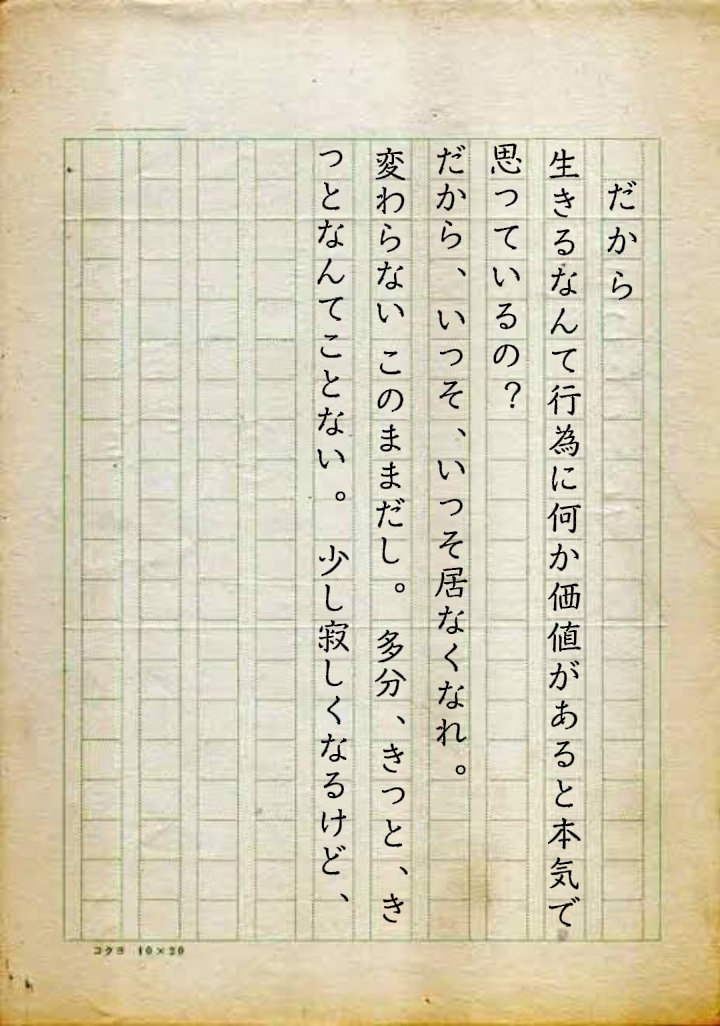 だから
生きるなんて行為に何か価値があると本気で
思っているの？
だから、いっそ、いっそ居なくなれ。
変わらない このままだし。 多分、きっと、き
っとなんてことない。 少し寂しくなるけど、
コクヨ 10×20